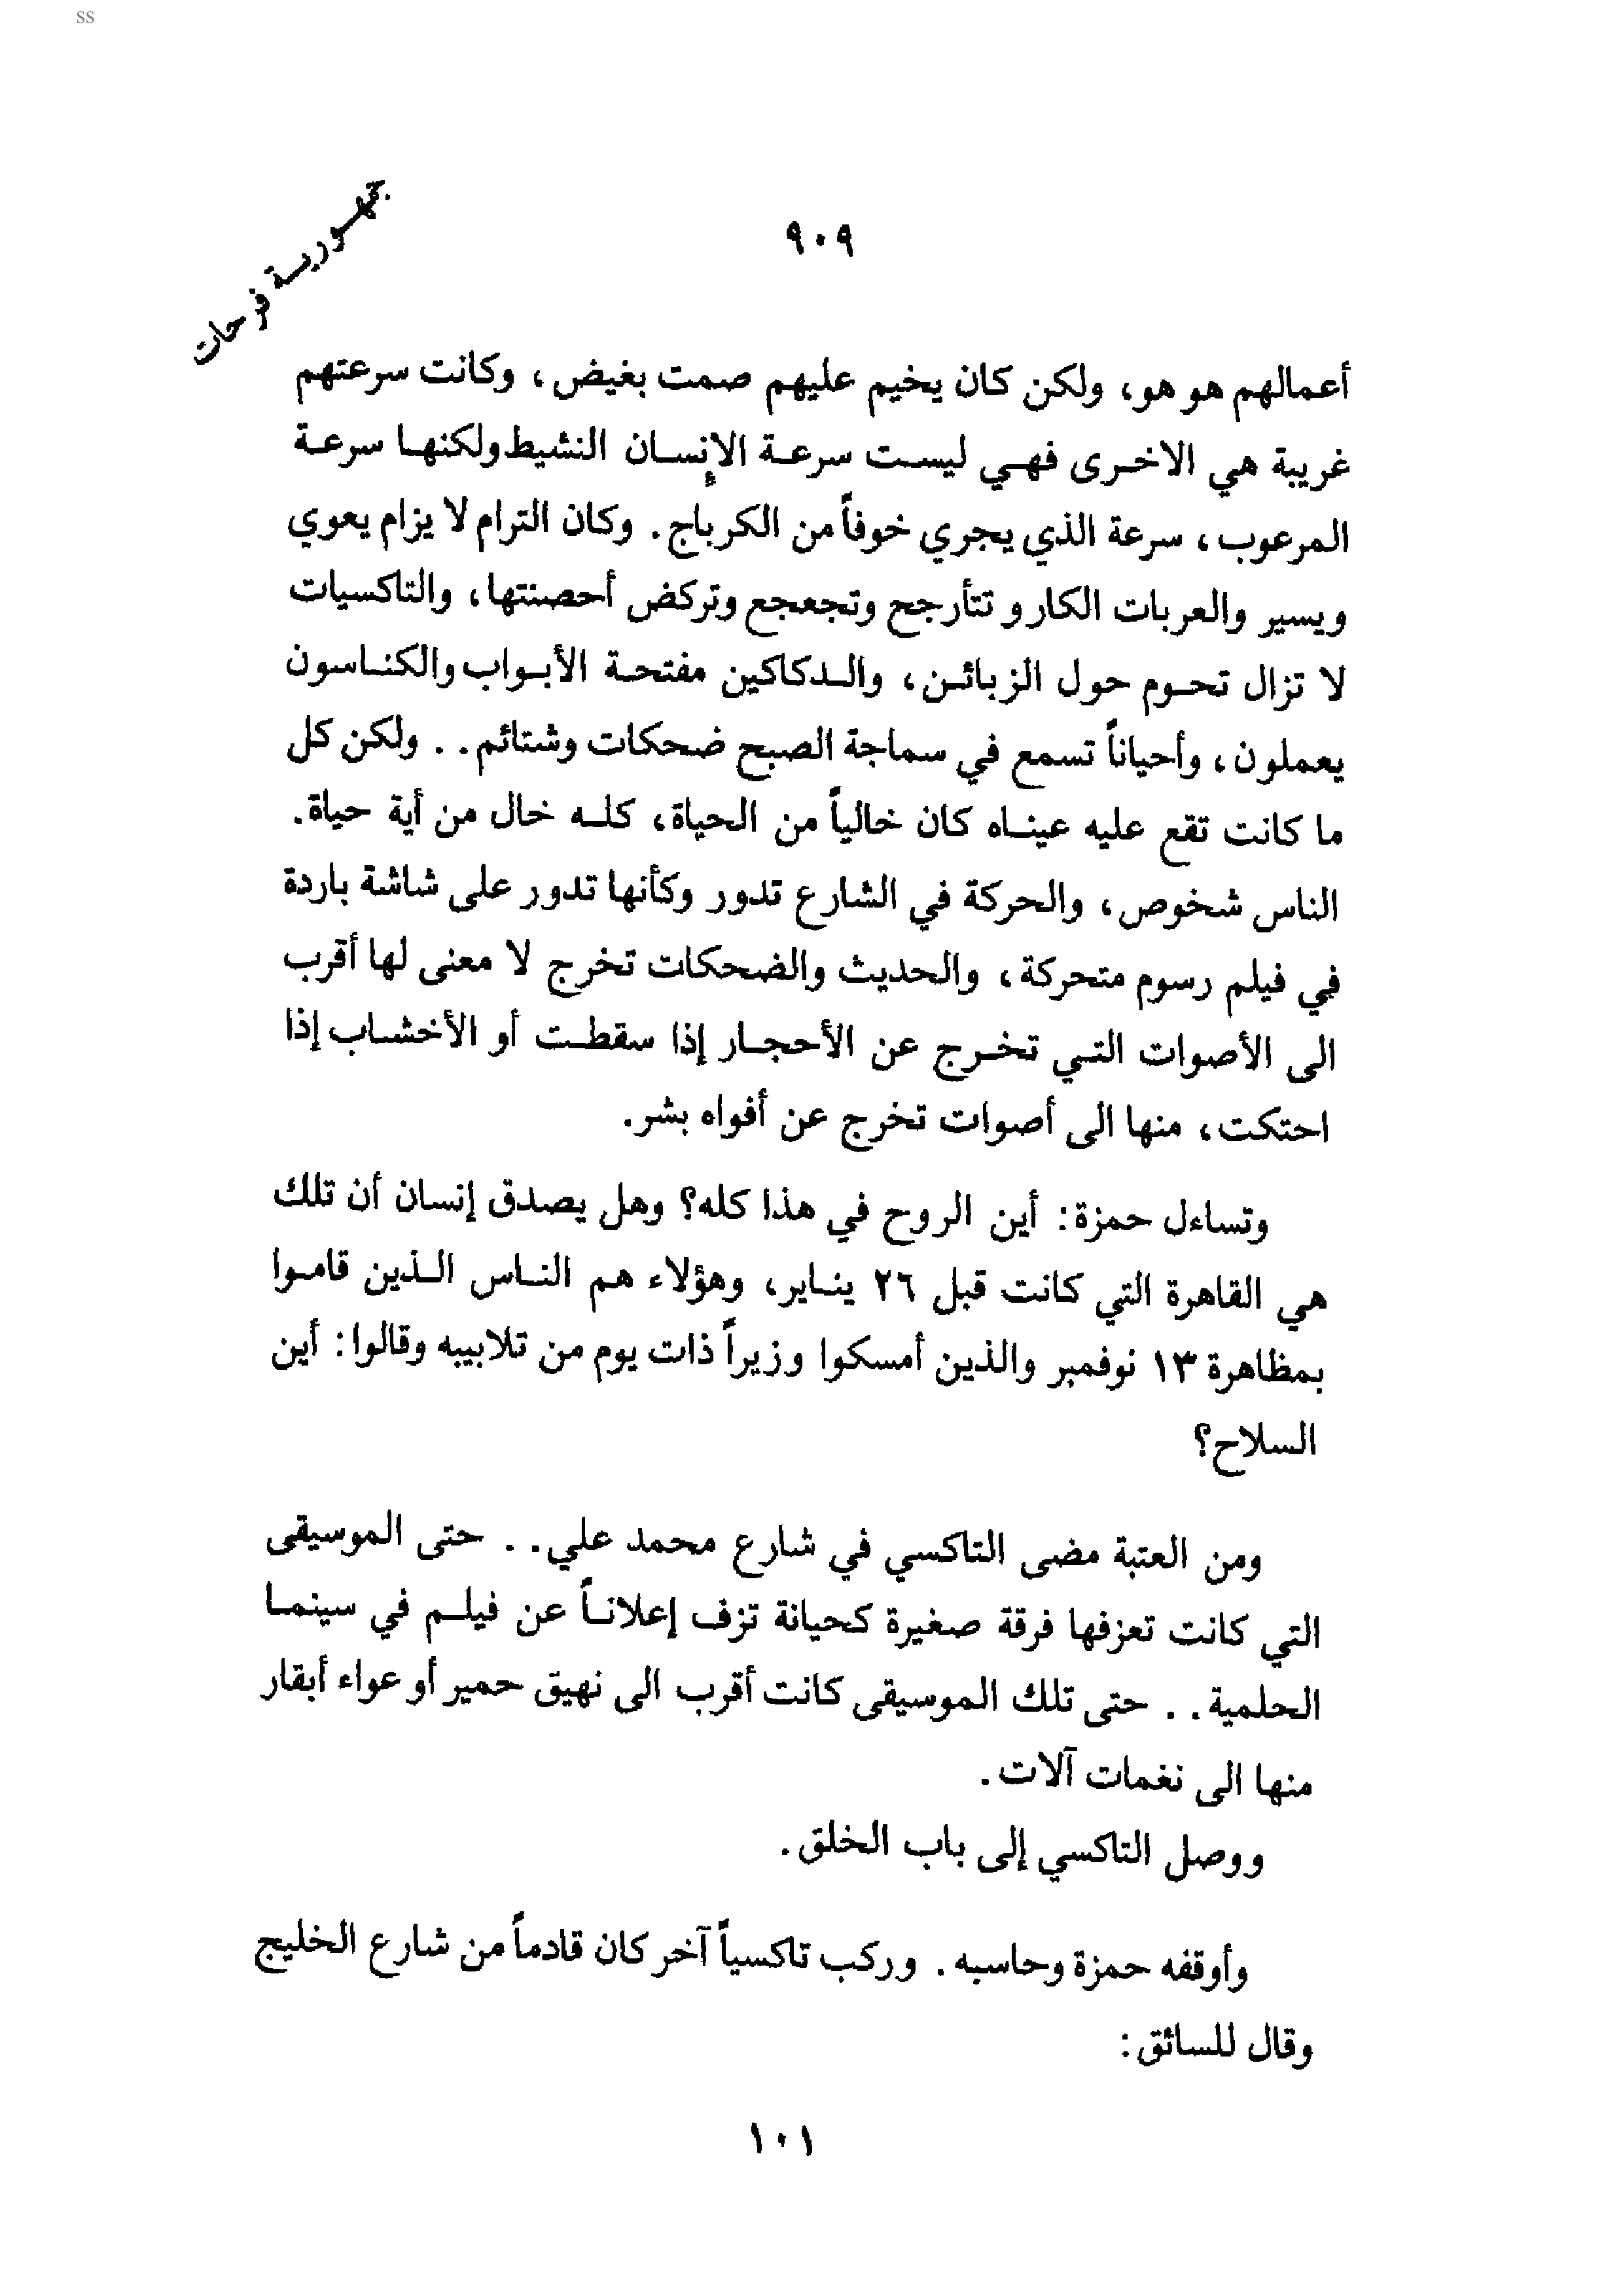 ss
جمهورية فرحات
٩٠٩
أعمالهم هو هو، ولكن كان يخيم عليهم صمت بغيض، وكانت سرعتهم
غريبة هي الاخرى فهي ليست سرعة الإنسان النشيط ولكنها سرعة
المرعوب، سرعة الذي يجري خوفاً من الكرباج. وكان الترام لا يزام يعوي
ويسير والعربات الكارو تتأرجح وتجعجع وتركض أحصنتها، والتاكسيات
لا تزال تحوم حول الزبائن، والدكاكين مفتحة الأبواب والكناسون
يعملون، وأحياناً تسمع في سماجة الصبح ضحكات وشتائم.. ولكن كل
ما كانت تقع عليه عيناه كان خالياً من الحياة، كله خال من أية حياة.
الناس شخوص، والحركة في الشارع تدور وكأنها تدور على شاشة باردة
في فيلم رسوم متحركة، والحديث والضحكات تخرج لا معنى لها أقرب
الى الأصوات التي تخرج عن الأحجار إذا سقطت أو الأخشاب إذا
احتكت، منها الى أصوات تخرج عن أفواه بشر.
وتساءل حمزة: أين الروح في هذا كله؟ وهل يصدق إنسان أن تلك
هي القاهرة التي كانت قبل ٢٦ يناير، وهؤلاء هم الناس الذين قاموا
بمظاهرة ١٣ نوفمبر والذين أمسكوا وزيراً ذات يوم من تلابيبه وقالوا: أين
السلاح؟
ومن العتبة مضى التاكسي في شارع محمد علي.. حتى الموسيقى
التي كانت تعزفها فرقة صغيرة كحيانة تزف إعلاناً عن فيلم في سينما
الحلمية.. حتى تلك الموسيقى كانت أقرب الى نهيق حمير أو عواء أبقار
منها الى نغمات آلات.
ووصل التاكسي إلى باب الخلق.
وأوقفه حمزة وحاسبه. وركب تاكسياً آخر كان قادماً من شارع الخليج
وقال للسائق:
١٠١